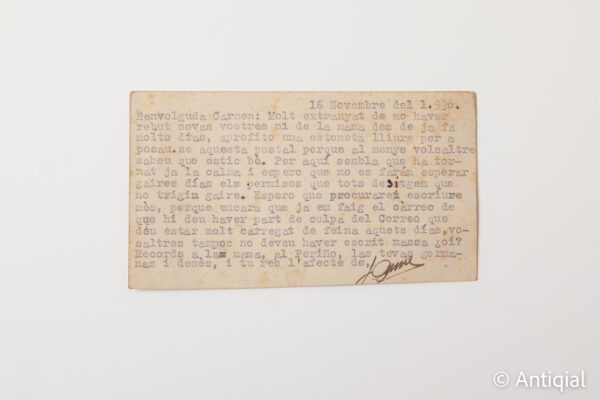 16 Novembre del 1.936.
Benvolguda Carmen: Molt extranyat de no haver
rebut novas vostres ni de la mama des de ja fa
molts dias, aprofito una estoneta lliure per a
posau.se aquesta postal perque al menys volsaltre
sabeu que estic bè. Per aquí sembla que ha tor-
nat ja la calma i espero que no es faran esperar
gaires días els permisos que tots desitgem que
no trigin gaire. Espero que procurareu escriure
mès, perque encara que ja em faig el càrrec de
que hi deu haver part de culpa del Correo que
deu estar molt carregat de feina aquets dias,vo-
saltres tampoc no deveu haver escrit massa ¿oi?
Records a la mama, al Periño, las tevas germa-
nas i demès, i tu reb l'afecte de,
Jaume
© Antiqial